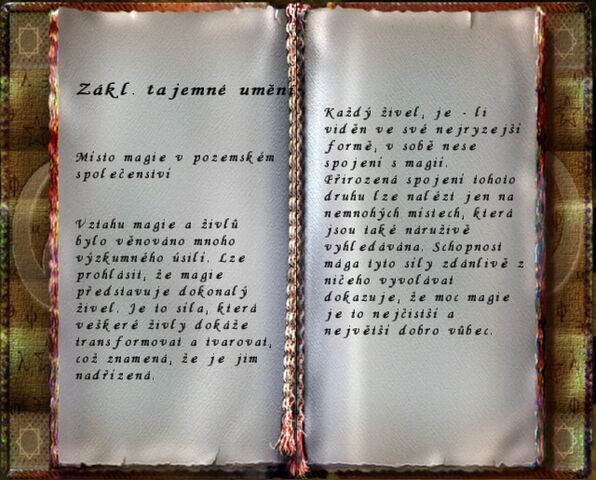 Zákl. tajemné umění
Místo magie v pozemském
společenství
Vztahu magie a živlů
bylo věnováno mnoho
výzkumného úsilí. Lze
prohlásit, že magie
představuje dokonalý
živel. Je to síla, která
veškeré živly dokáže
transformovat a tvarovat,
což znamená, že je jim
nadřízená.
Každý živel, je - li
viděn ve své nejryzejší
formě, v sobě nese
spojení s magií.
Přirozená spojení tohoto
druhu lze nalézt jen na
nemnohých místech, která
jsou také náruživě
vyhledávána. Schopnost
mága tyto síly zdánlivě z
ničeho vyvolávat
dokazuje, že moc magie
je to nejčistší a
největší dobro vůbec.